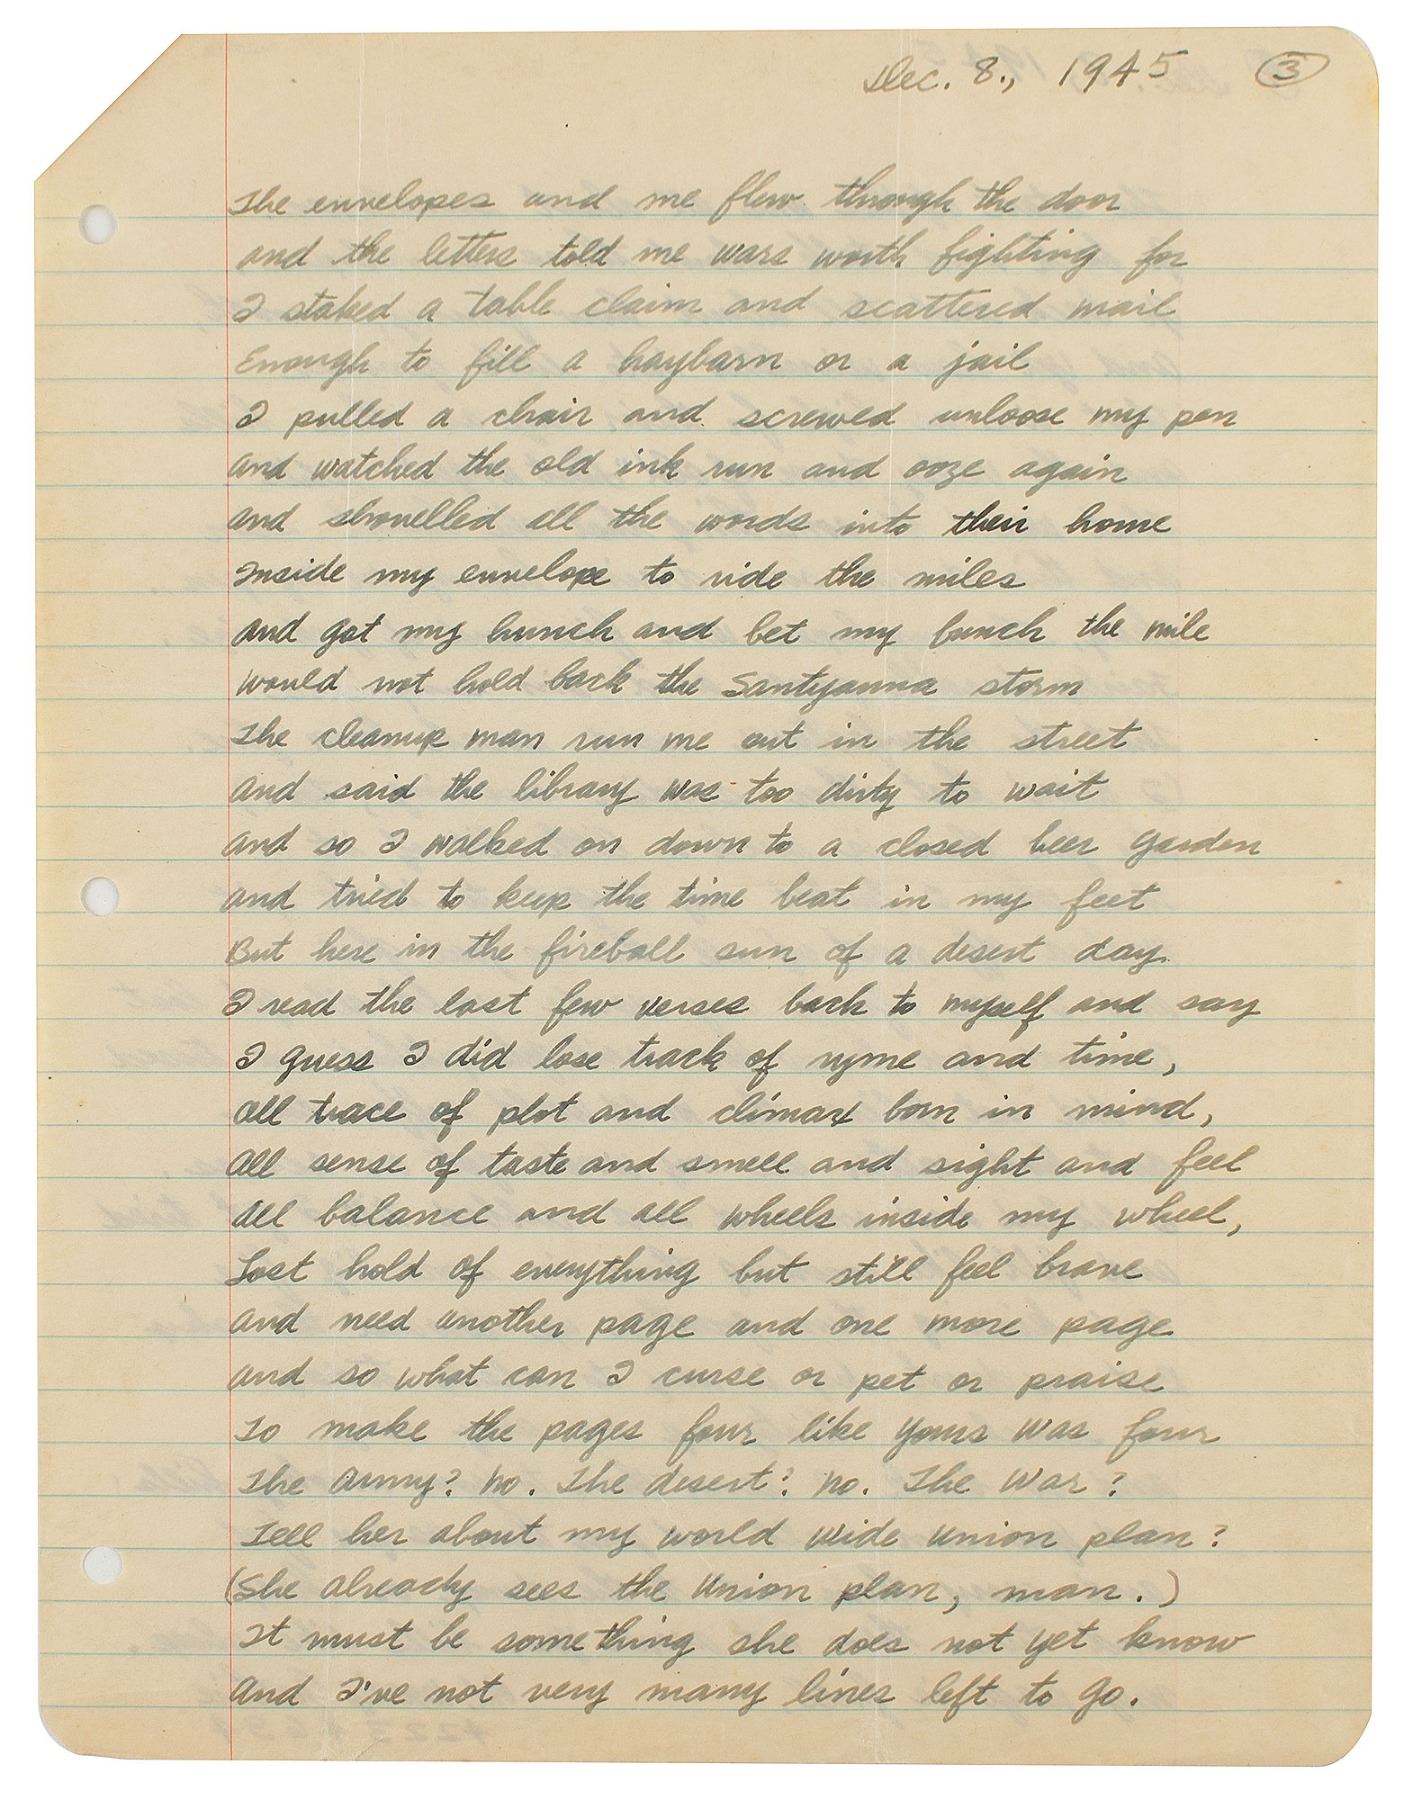 Dec. 8., 1945 3
The envelopes and me flew through the door
and the letters told me wars worth fighting for
I staked a table claim and scattered mail
Enough to fill a haybarn or a jail
I pulled a chair and screwed unloose my pen
And watched the old ink run and ooze again
And shovelled all the words into their home
Inside my envelope to ride the miles
And got my hunch and bet my bunch the mile
Would not hold back the Santyanna storm
The cleanup man run me out in the street
And said the library was too dirty to wait
And so I walked on down to a closed beer garden
And tried to keep the time beat in my feet
But here in the fireball sun of a desert day
I read the last few verses back to myself and say
I guess I did lose track of ryme and time,
All trace of plot and climax born in mind,
All sense of taste and smell and sight and feel
All balance and all wheels inside my wheel,
Lost hold of everything but still feel brave
And need another page and one more page
And so what can I curse or pet or praise
To make the pages four like yours was four
The Army? No. The desert? No. The War?
Tell her about my world wide union plan?
(She already sees the Union plan, man.)
It must be something she does not yet know
And I've not very many lines left to go.